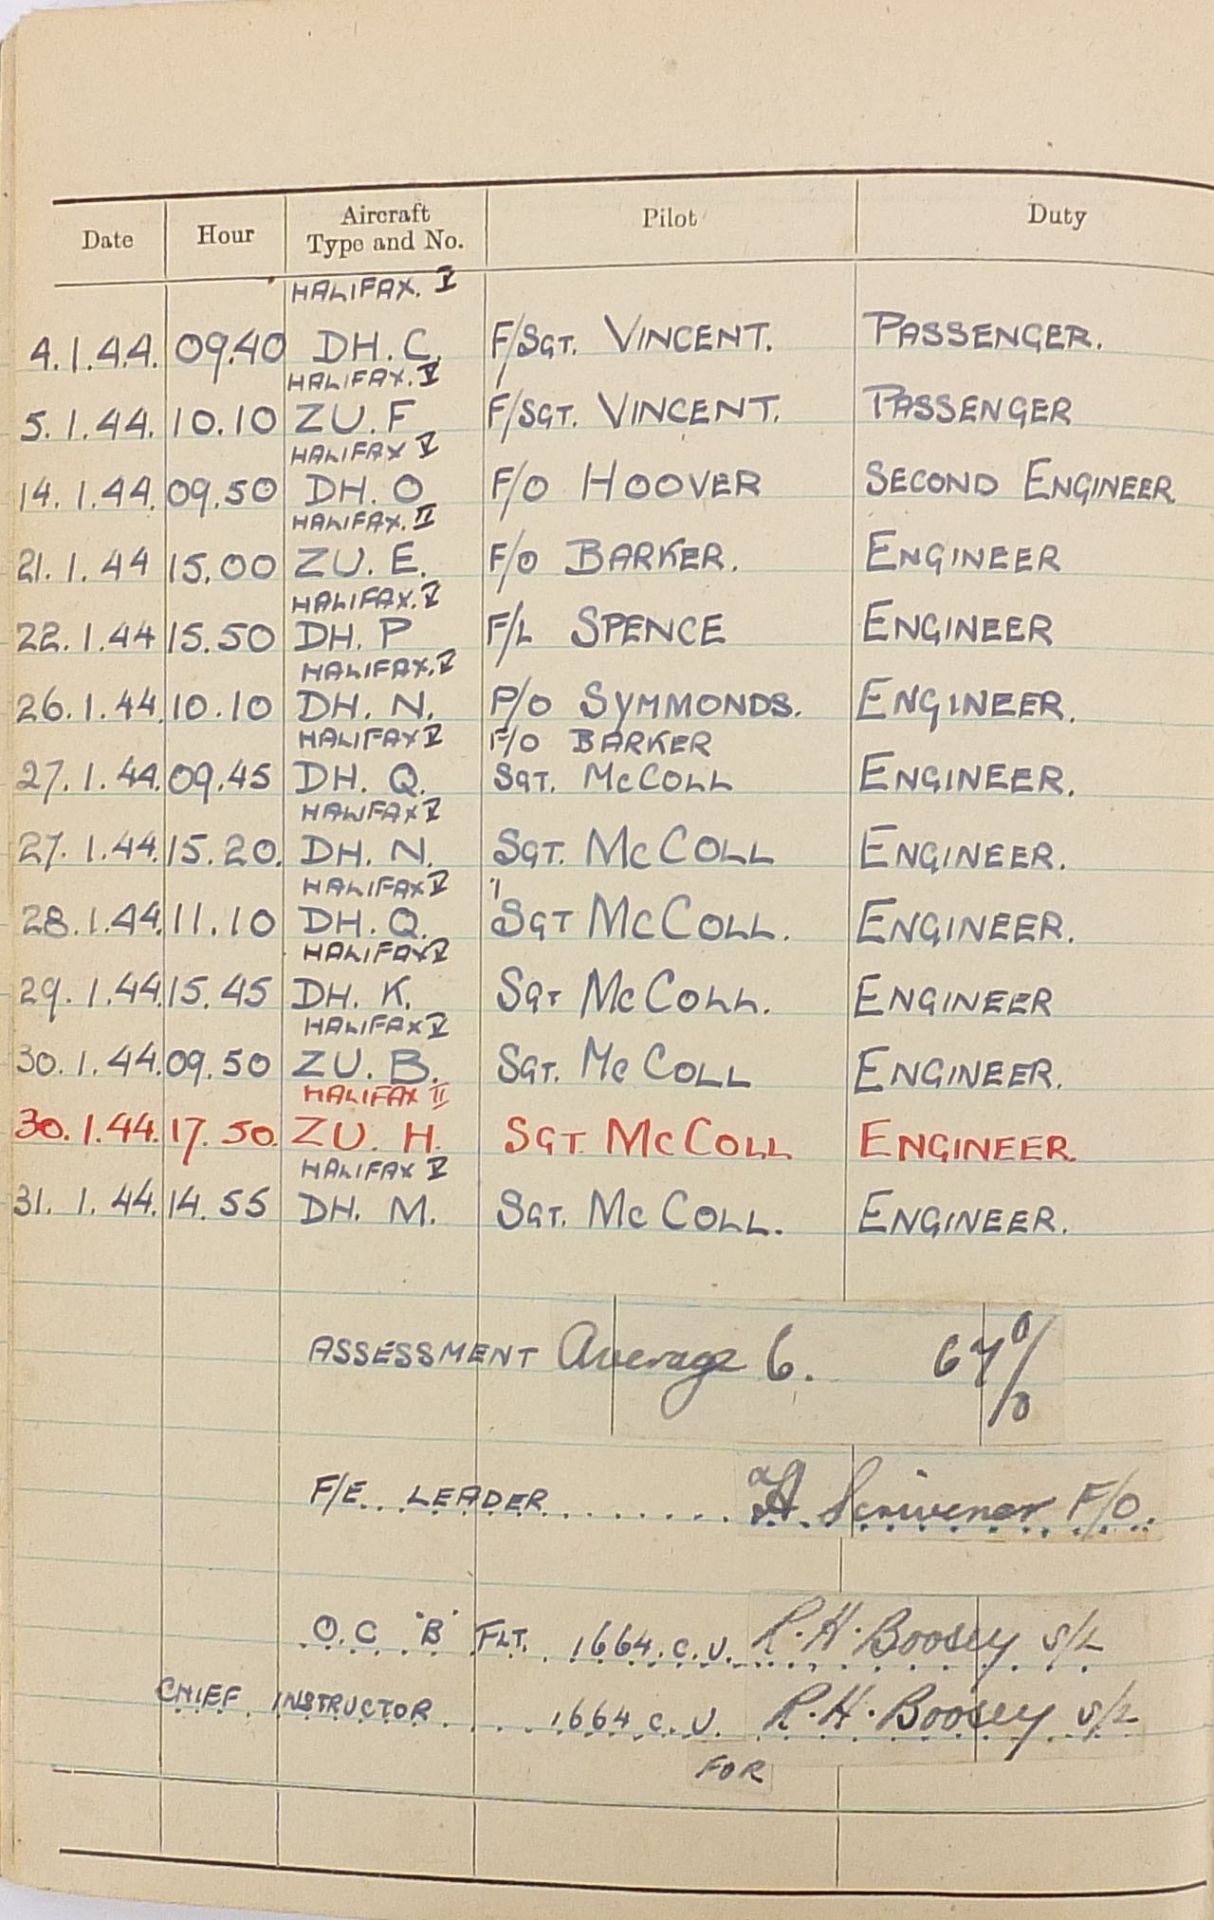 Date Hour Aircraft Type and No. Pilot Duty
HALIFAX. V
4.1.44. 09.40 DH.C. F/SGT. VINCENT. PASSENGER.
HALIFAX. V
5.1.44. 10.10 ZU.F F/SGT. VINCENT. PASSENGER
HALIFAX V
14.1.44. 09.50 DH.O F/O HOOVER SECOND ENGINEER
HALIFAX. II
21.1.44 15.00 ZU.E. F/O BARKER. ENGINEER
HALIFAX. V
22.1.44 15.50 DH.P F/L SPENCE ENGINEER
HALIFAX. V
26.1.44. 10.10 DH.N. P/O SYMMONDS. ENGINEER.
HALIFAX V F/O BARKER
27.1.44. 09.45 DH.Q. SGT. McCOLL ENGINEER.
HALIFAX V
27.1.44. 15.20. DH.N. SGT. McCOLL ENGINEER.
HALIFAX V
28.1.44. 11.10 DH.Q. SGT McCOLL. ENGINEER.
HALIFAX V
29.1.44. 15.45 DH.K. SGT McCOLL. ENGINEER
HALIFAX V
30.1.44. 09.50 ZU.B. SGT. McCOLL ENGINEER.
HALIFAX II
30.1.44. 17.50. ZU.H. SGT. McCOLL ENGINEER.
HALIFAX V
31.1.44. 14.55 DH.M. SGT. McCOLL. ENGINEER.
ASSESSMENT Average 6. 67%
F/E. LEADER Scrivener F/O.
O.C "B" FLT. 1664.C.U. R.H.Boosey S/L
CHIEF INSTRUCTOR 1664 C.U. R.H.Boosey S/L
FOR